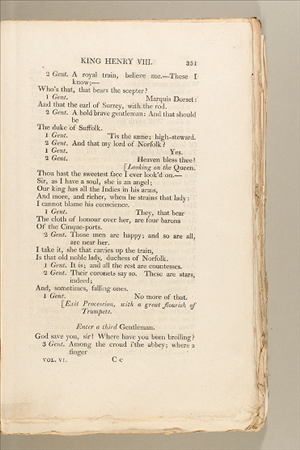 KING HENRY VIII. 351
2 Gent. A royal train, believe me.—These I
know;—
Who's that, that bears the scepter?
1 Gent. Marquis Dorset:
And that the earl of Surrey, with the rod.
2 Gent. A bold brave gentleman: And that should
be
The duke of Suffolk.
1 Gent. 'Tis the same; high-steward.
2 Gent. And that my lord of Norfolk?
1 Gent. Yes.
2 Gent. Heaven bless thee!
[Looking on the Queen.
Thou hast the sweetest face I ever look'd on.—
Sir, as I have a soul, she is an angel;
Our king has all the Indies in his arms,
And more, and richer, when he strains that lady:
I cannot blame his conscience.
1 Gent. They, that bear
The cloth of honour over her, are four barons
Of the Cinque-ports.
2 Gent. Those men are happy; and so are all,
are near her.
I take it, she that carries up the train,
Is that old noble lady, duchess of Norfolk.
1 Gent. It is; and all the rest are countesses.
2 Gent. Their coronets say so. These are stars,
indeed;
And, sometimes, falling ones.
1 Gent. No more of that.
[Exit Procession, with a great flourish of
Trumpets.
Enter a third Gentleman.
God save you, sir! Where have you been broiling?
3 Gent. Among the croud i'the abbey; where a
finger
VOL. VI. C c